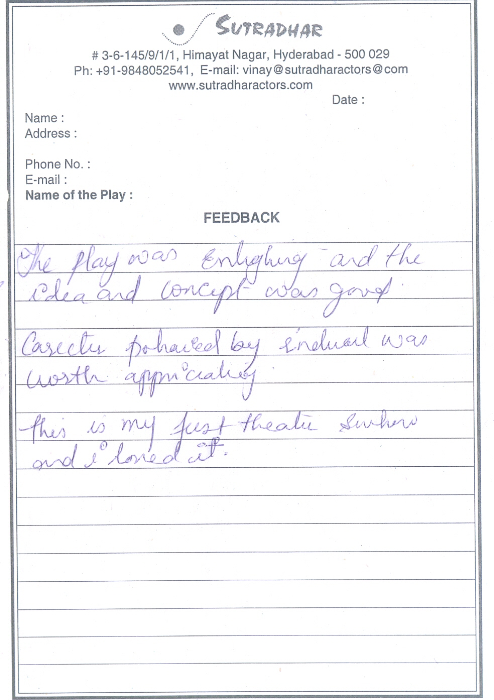 SUTRADHAR
# 3-6-145/9/1/1, Himayat Nagar, Hyderabad - 500 029
Ph: +91-9848052541, E-mail: vinay@sutradharactors@com
www.sutradharactors.com
Date :
Name :
Address :
Phone No. :
E-mail :
Name of the Play :
FEEDBACK
The play was and the
idea and concept was good.
by was
worth
This is my first theatre
and i loved it.